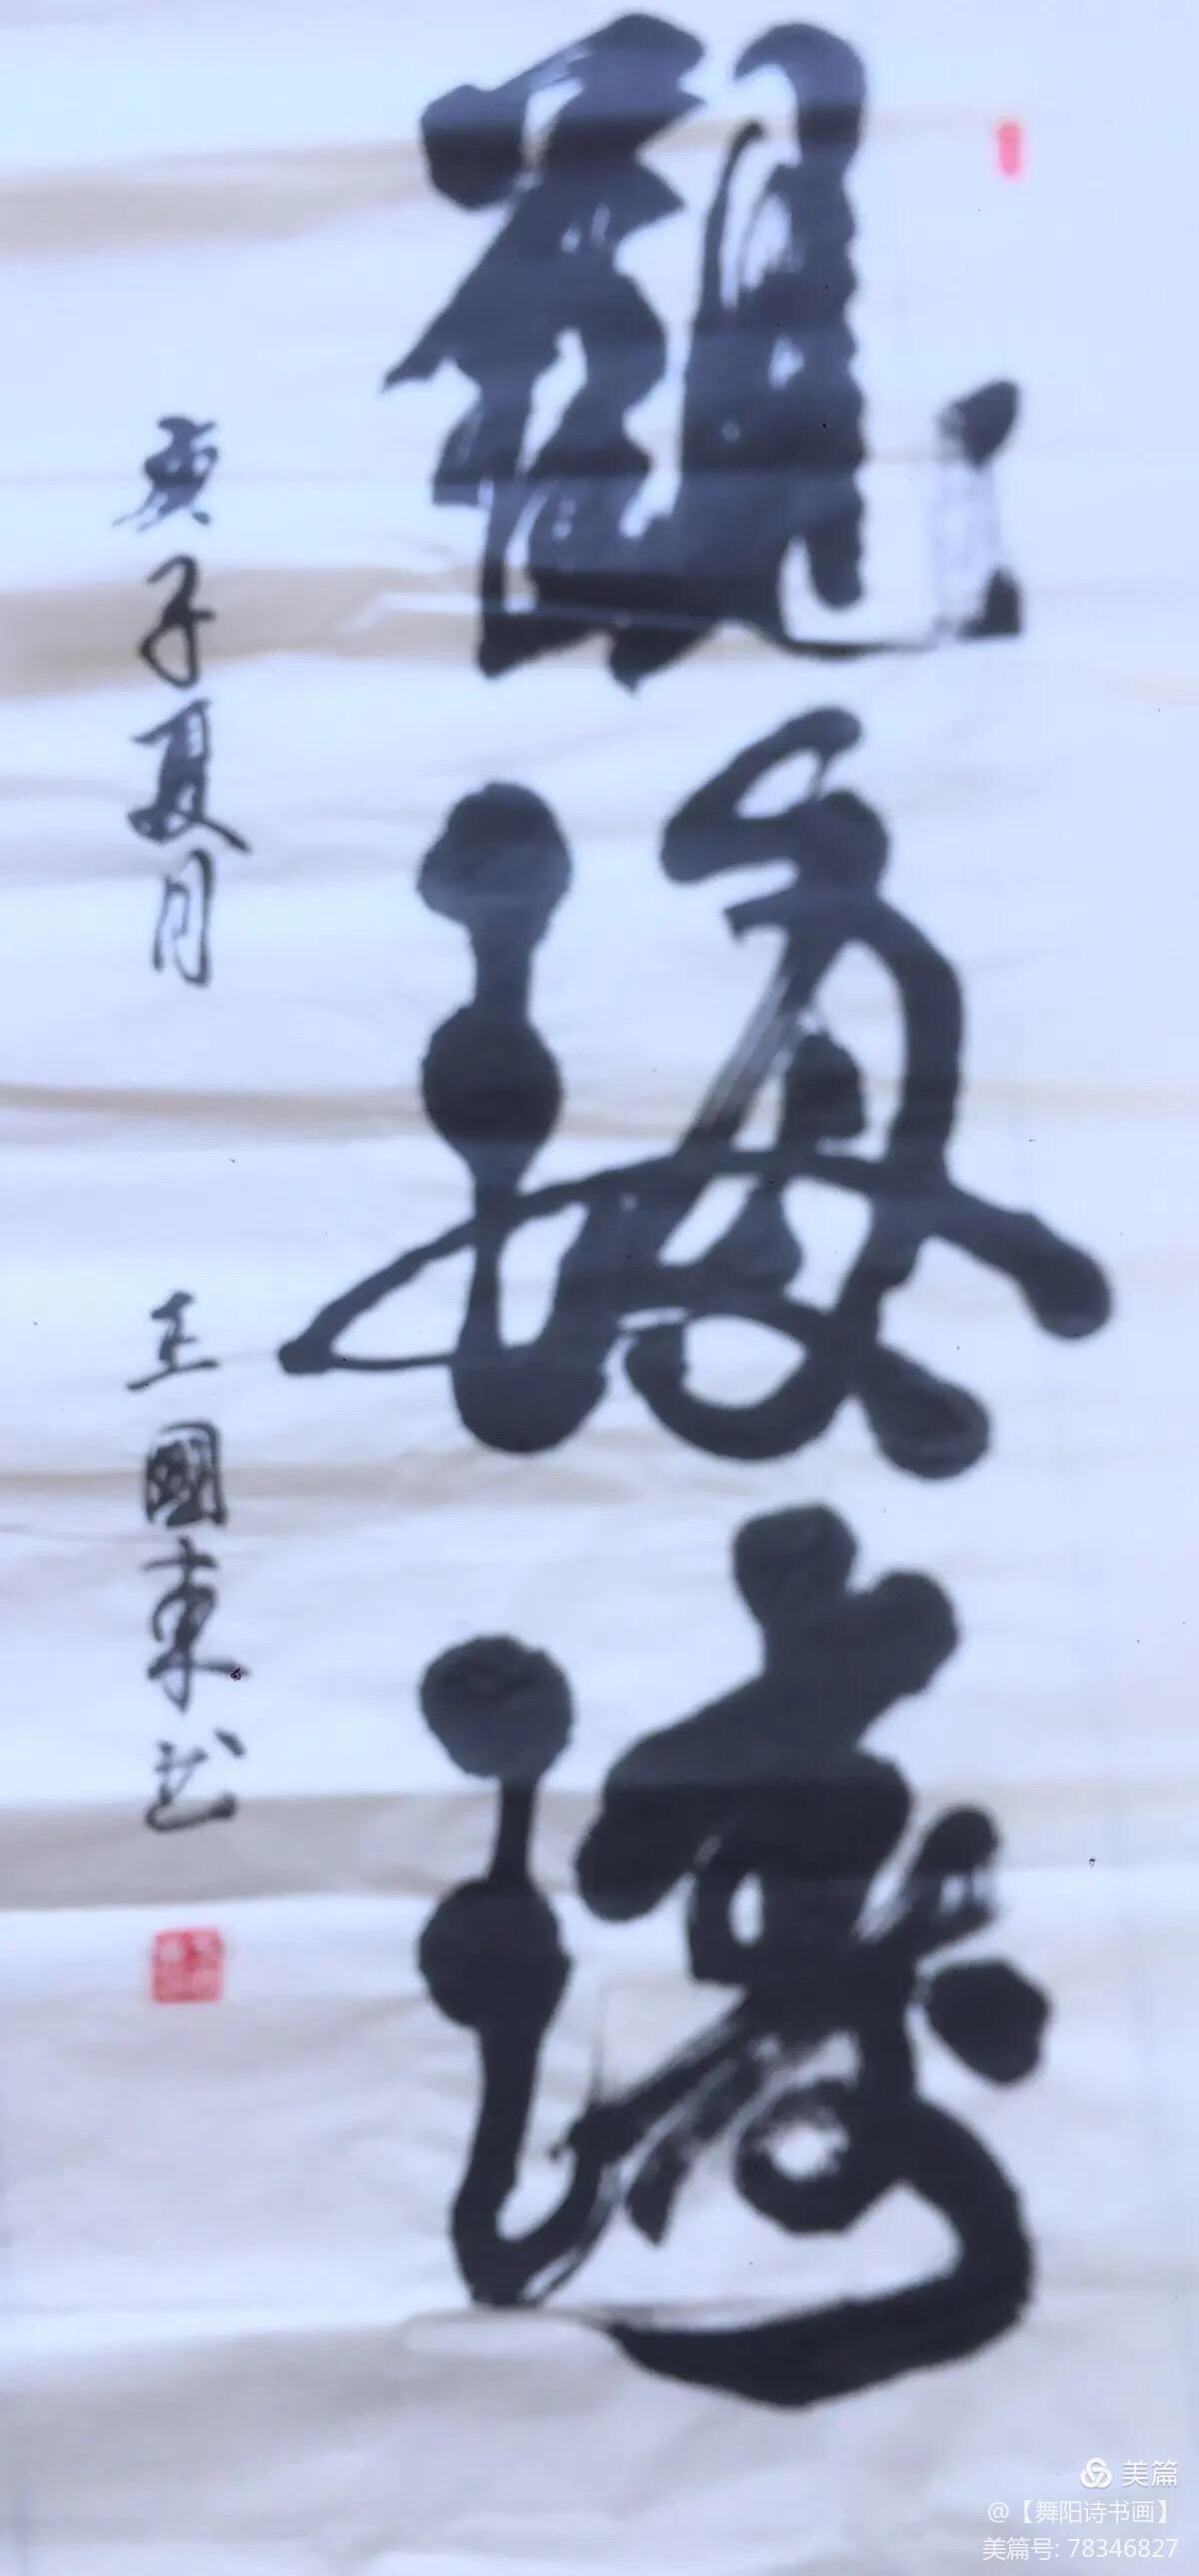 觀海濤
庚子夏月 王國東書
美篇
@【舞阳诗书画】
美篇号: 78346827